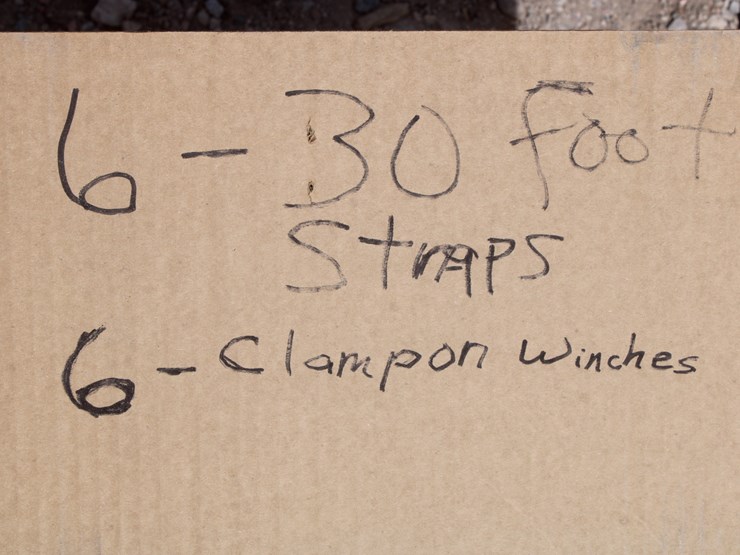 6 - 30 foot
Straps
6 - Clampon Winches